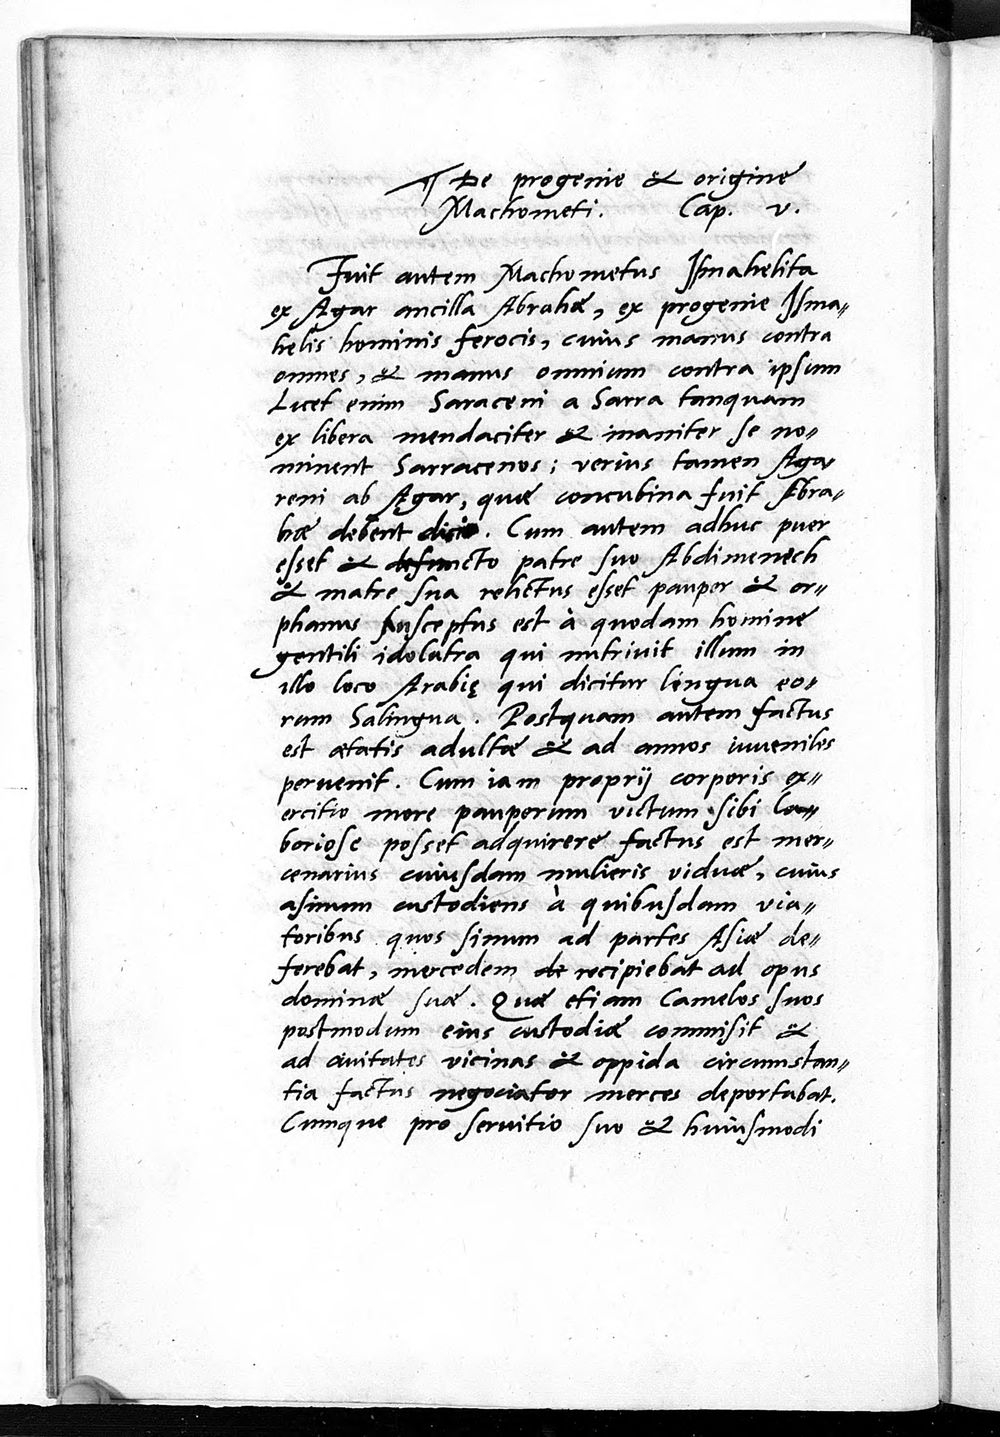 ¶ De progenie & origine
Machometi. Cap. v.
Fuit autem Machometus Jsmahelita
ex Agar ancilla Abrahæ, ex progenie Jsma〃
helis hominis ferocis, cuius manus contra
omnes, & manus omnium contra ipsum
Licet enim Saraceni a Sarra tanquam
ex libera mendaciter & inaniter se no〃
minent Sarracenos; verius tamen Aga〃
reni ab Agar, quæ concubina fuit Abra〃
hæ debent dici. Cum autem adhuc puer
esset & defuncto patre suo Abdimenech
& matre sua relictus esset pauper & or〃
phanus susceptus est à quodam homine
gentili idolatra qui nutriuit illum in
illo loco Arabię qui dicitur lingua eo〃
rum Salingua. Postquam autem factus
est ætatis adultæ & ad annos iuueniles
peruenit. Cum iam proprij corporis ex〃
ercitio more pauperum victum sibi la〃
boriose posset adquirere factus est mer〃
cenarius cuiusdam mulieris viduæ, cuius
asinum custodiens à quibusdam via〃
toribus quos sinum ad partes Asiæ de〃
ferebat, mercedem de recipiebat ad opus
dominæ suæ. Quæ etiam Camelos suos
postmodum eius custodiæ commisit &
ad ciuitates vicinas & oppida circumstan〃
tia factus negociator merces deportabat.
Cumque pro seruitio suo & huiusmodi